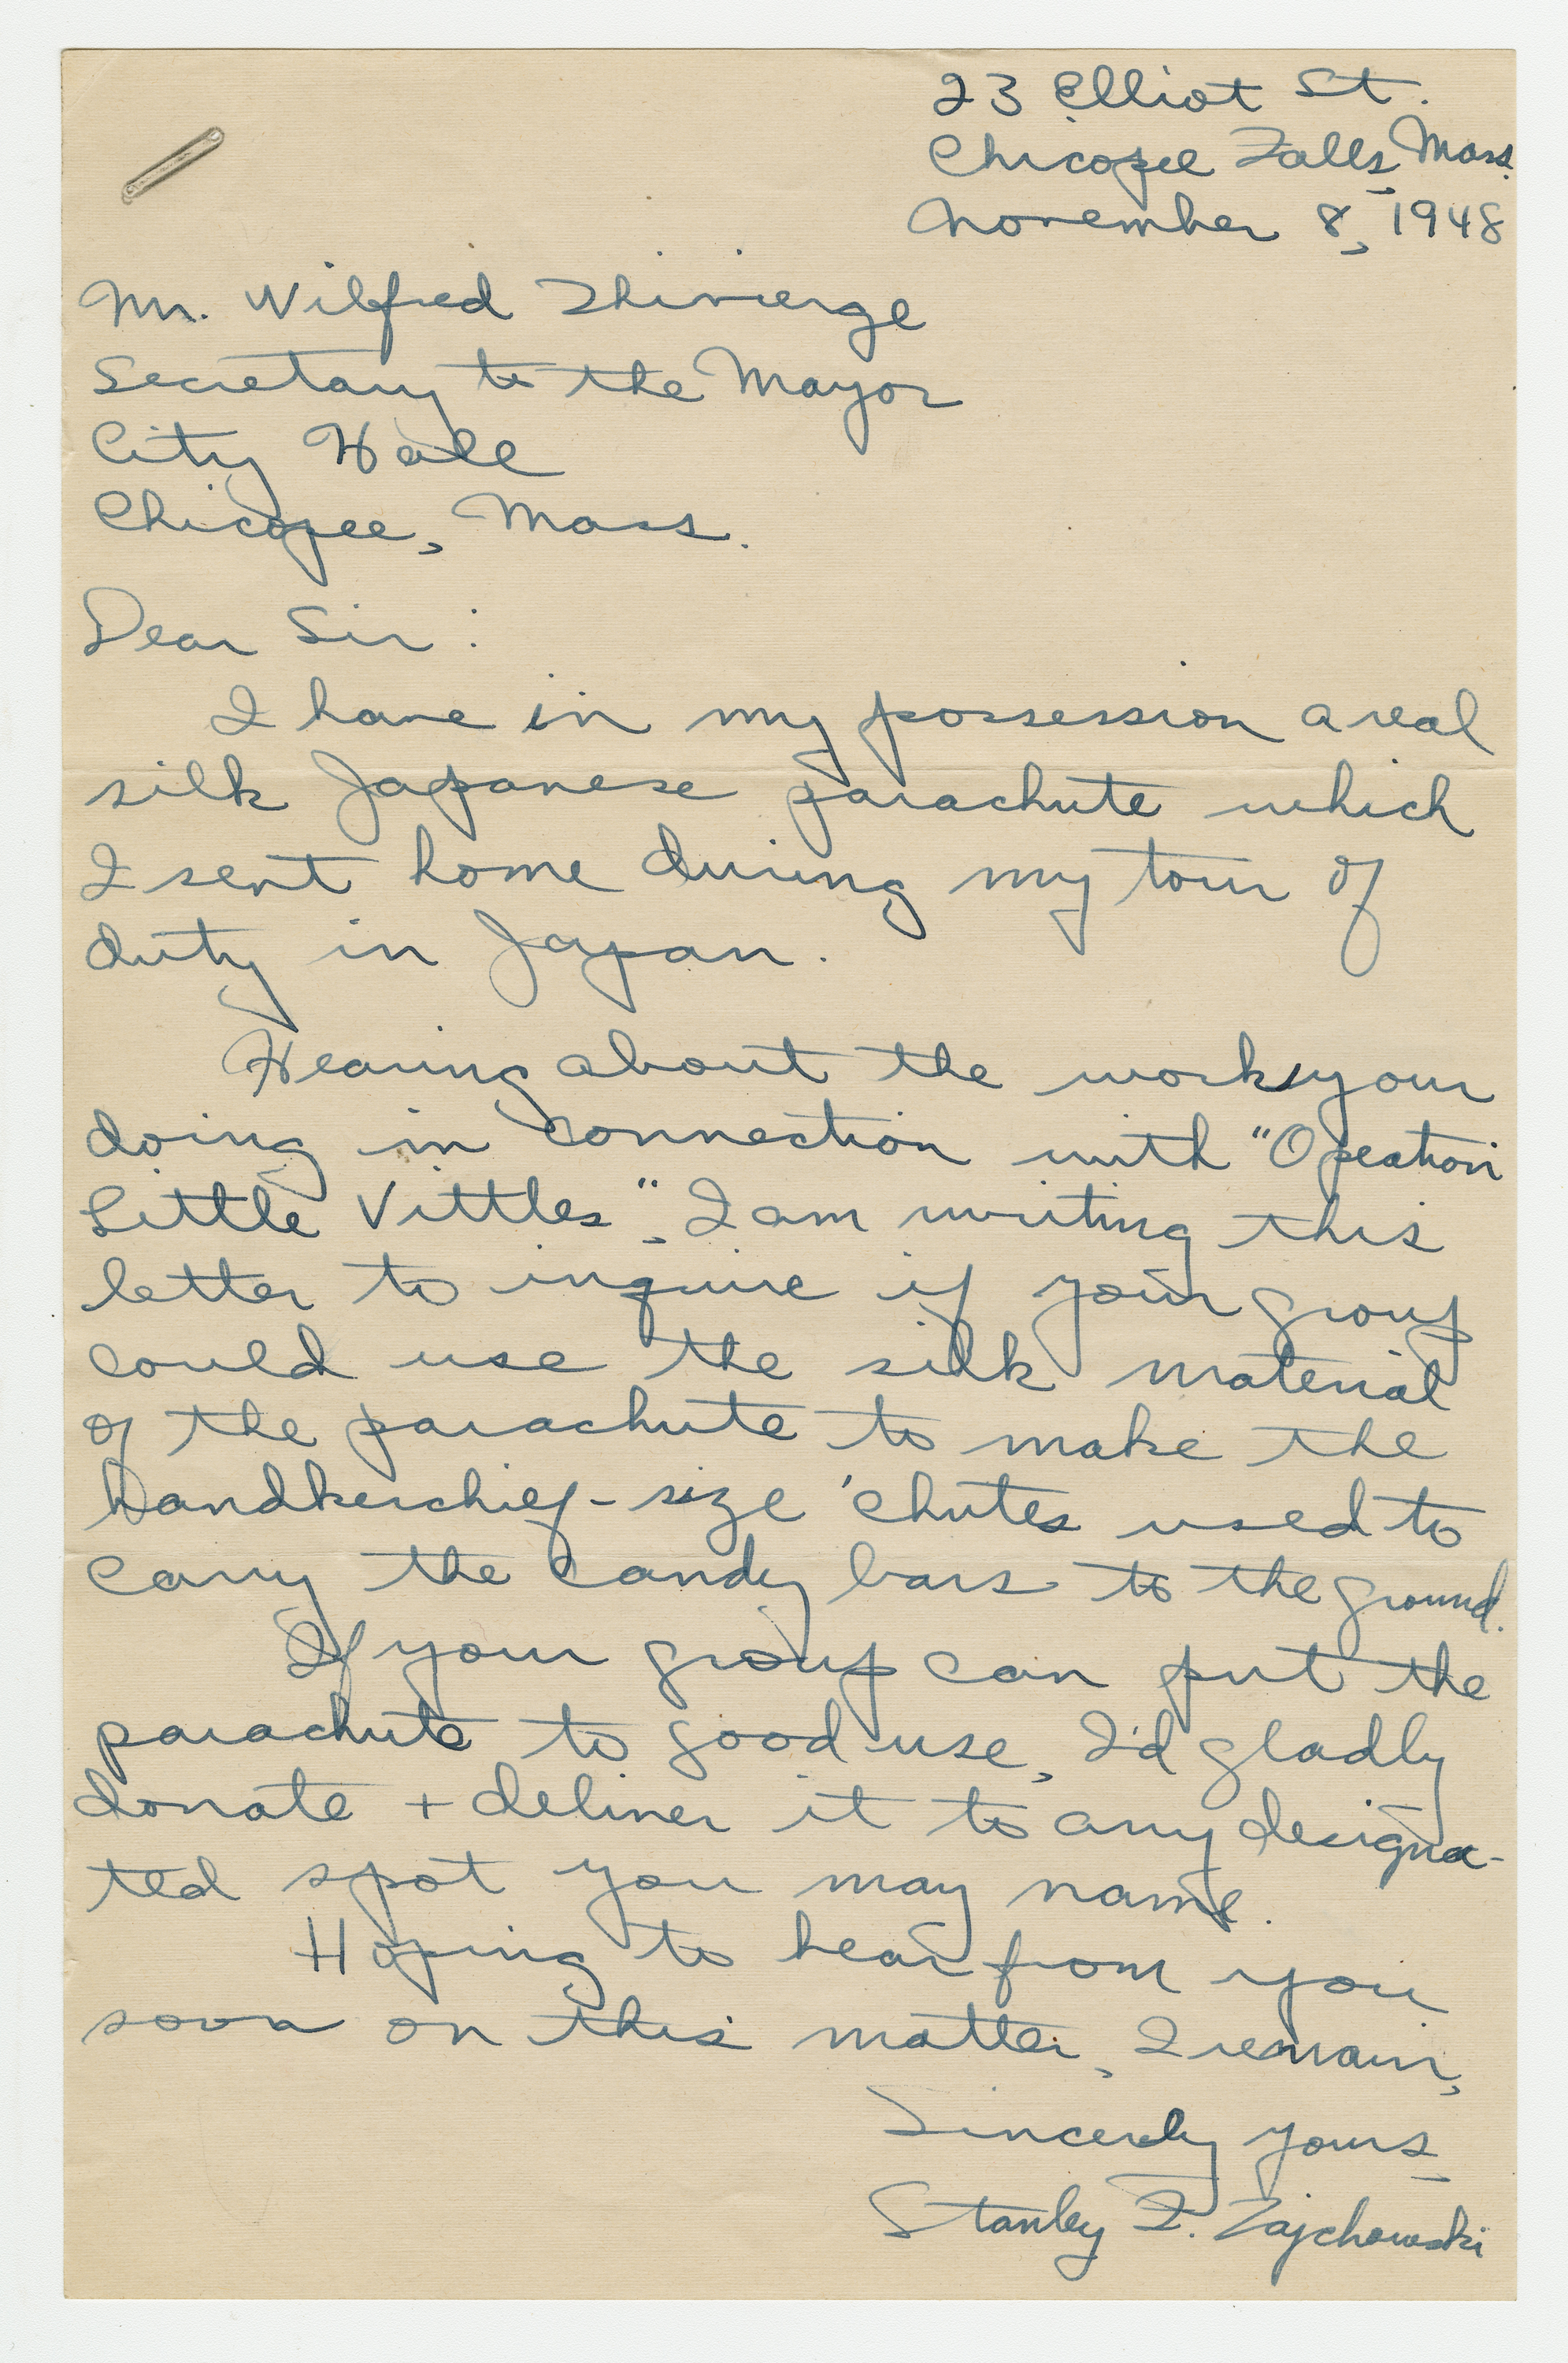 23 Elliot St.
Chicopee Falls, Mass.
November 8, 1948
Mr. Wilfred Thivierge
Secretary to the Mayor
City Hall
Chicopee, Mass.
Dear Sir:
I have in my possession a real
silk Japanese parachute which
I sent home during my tour of
duty in Japan.
Hearing about the work your
doing in connection with "Opeation
Little Vittles", I am writing this
letter to inquire if your group
could use the silk material
of the parachute to make the
handkerchief-size 'chutes used to
carry the candy bars to the ground.
If your group can put the
parachute to good use, I'd gladly
donate + deliver it to any designa-
ted spot you may name.
Hoping to hear from you
soon on this matter, I remain,
Sincerely yours,
Stanley F. Zajchowski